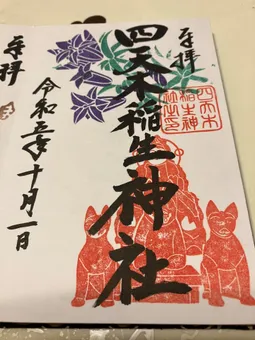 奉拝
四天木
稲生神
社之印
四天木稲生神社
令和五年十月一日
奉拝